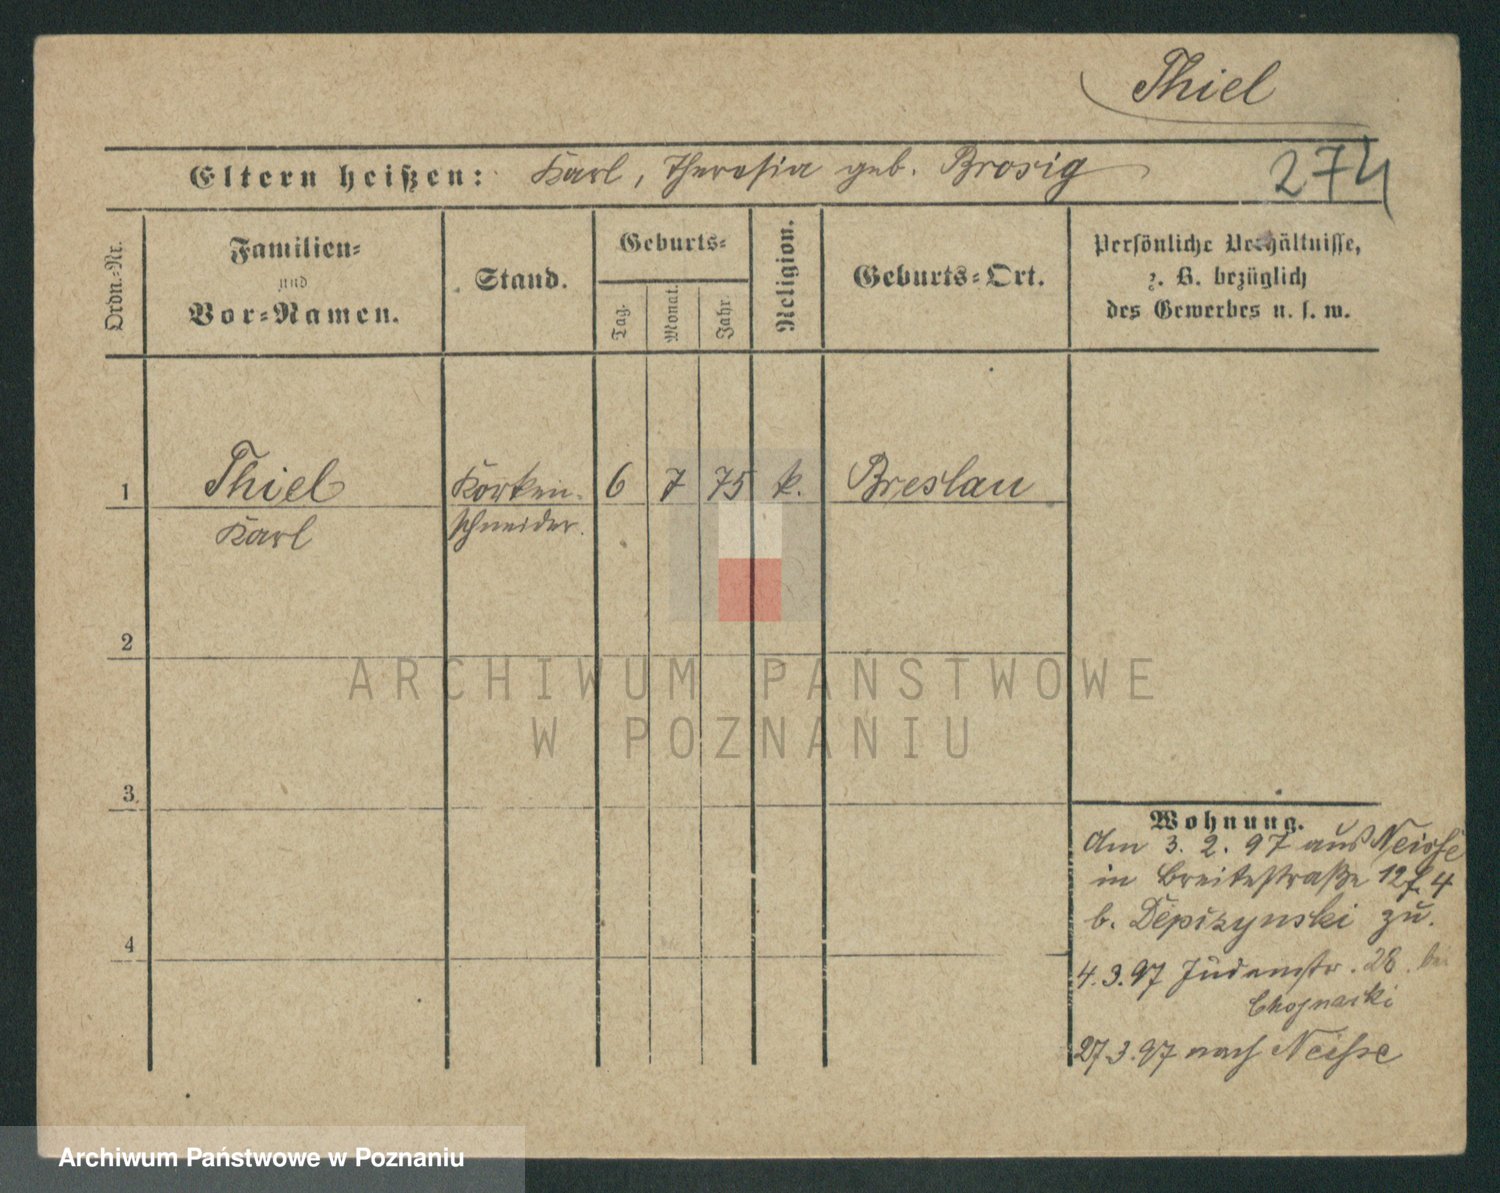 Thiel
Eltern heißen: Karl, Theresia geb. Brosig
274
Ordn.-Nr.
Familien-
und
Vor-Namen.
Stand.
Geburts-
Tag.
Monat.
Jahr
Religion.
Geburts-Ort.
Persönliche Verhältnisse,
z. B. bezüglich
des Gewerbes u. s. w.
1 Thiel Korken- 6 7 75 k. Breslau
Karl schneider.
2
3
4
Wohnung.
Am 3. 2. 97 aus Neisse
in Breitestraße 12 4
b. zu.
4.3.97 Judenstr. 28. bei
27.3.97 nach Neisse
ARCHIWUM PAŃSTWOWE
W POZNANIU
Archiwum Państwowe w Poznaniu